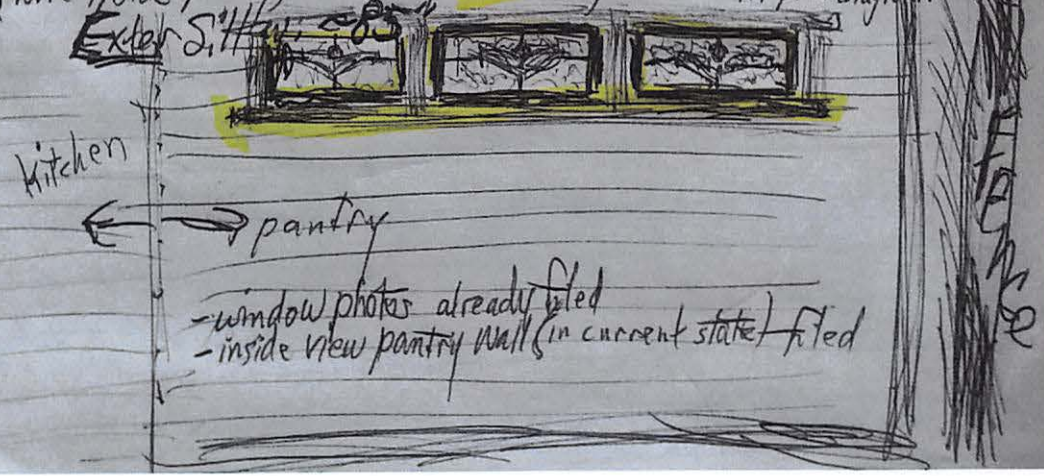 Exter Sill Ht: ≈ 83"
kitchen
pantry
-window photos already filed
-inside view pantry wall (in current state) filed